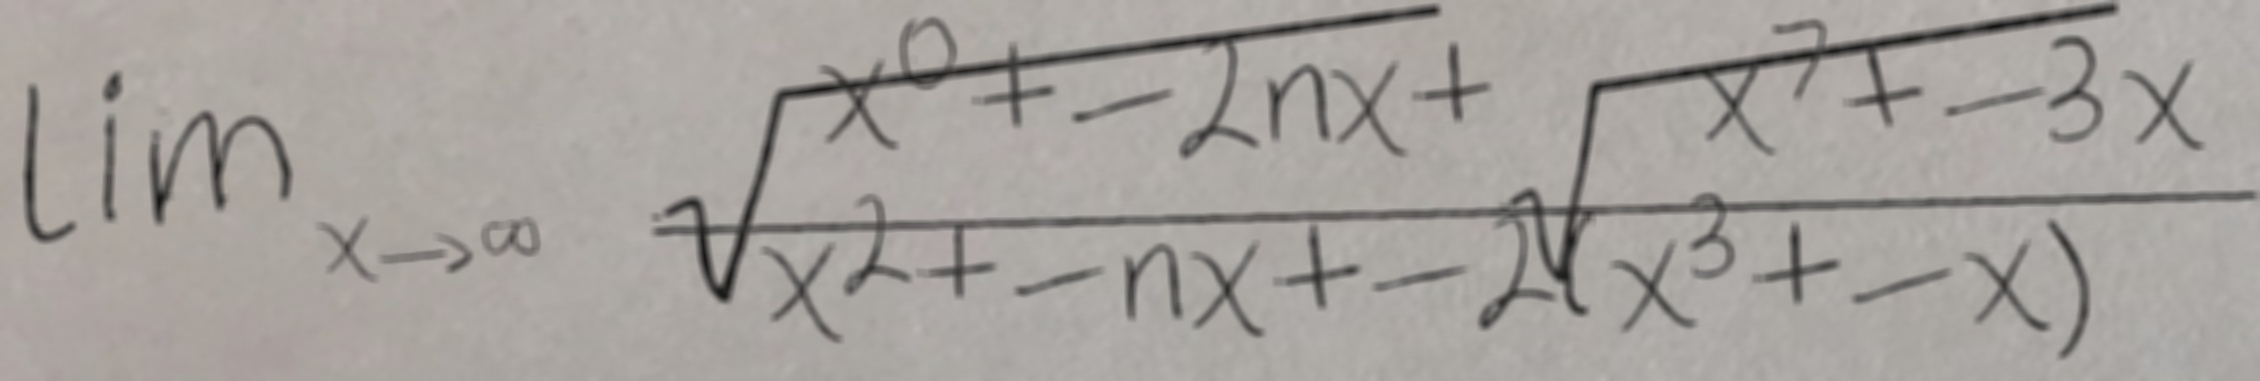 \lim_{x \to \infty} \frac{\sqrt{x^0 + -2nx} + \sqrt{x^7 + -3x}}{x^2 + -nx + -2(x^3 + -x)}